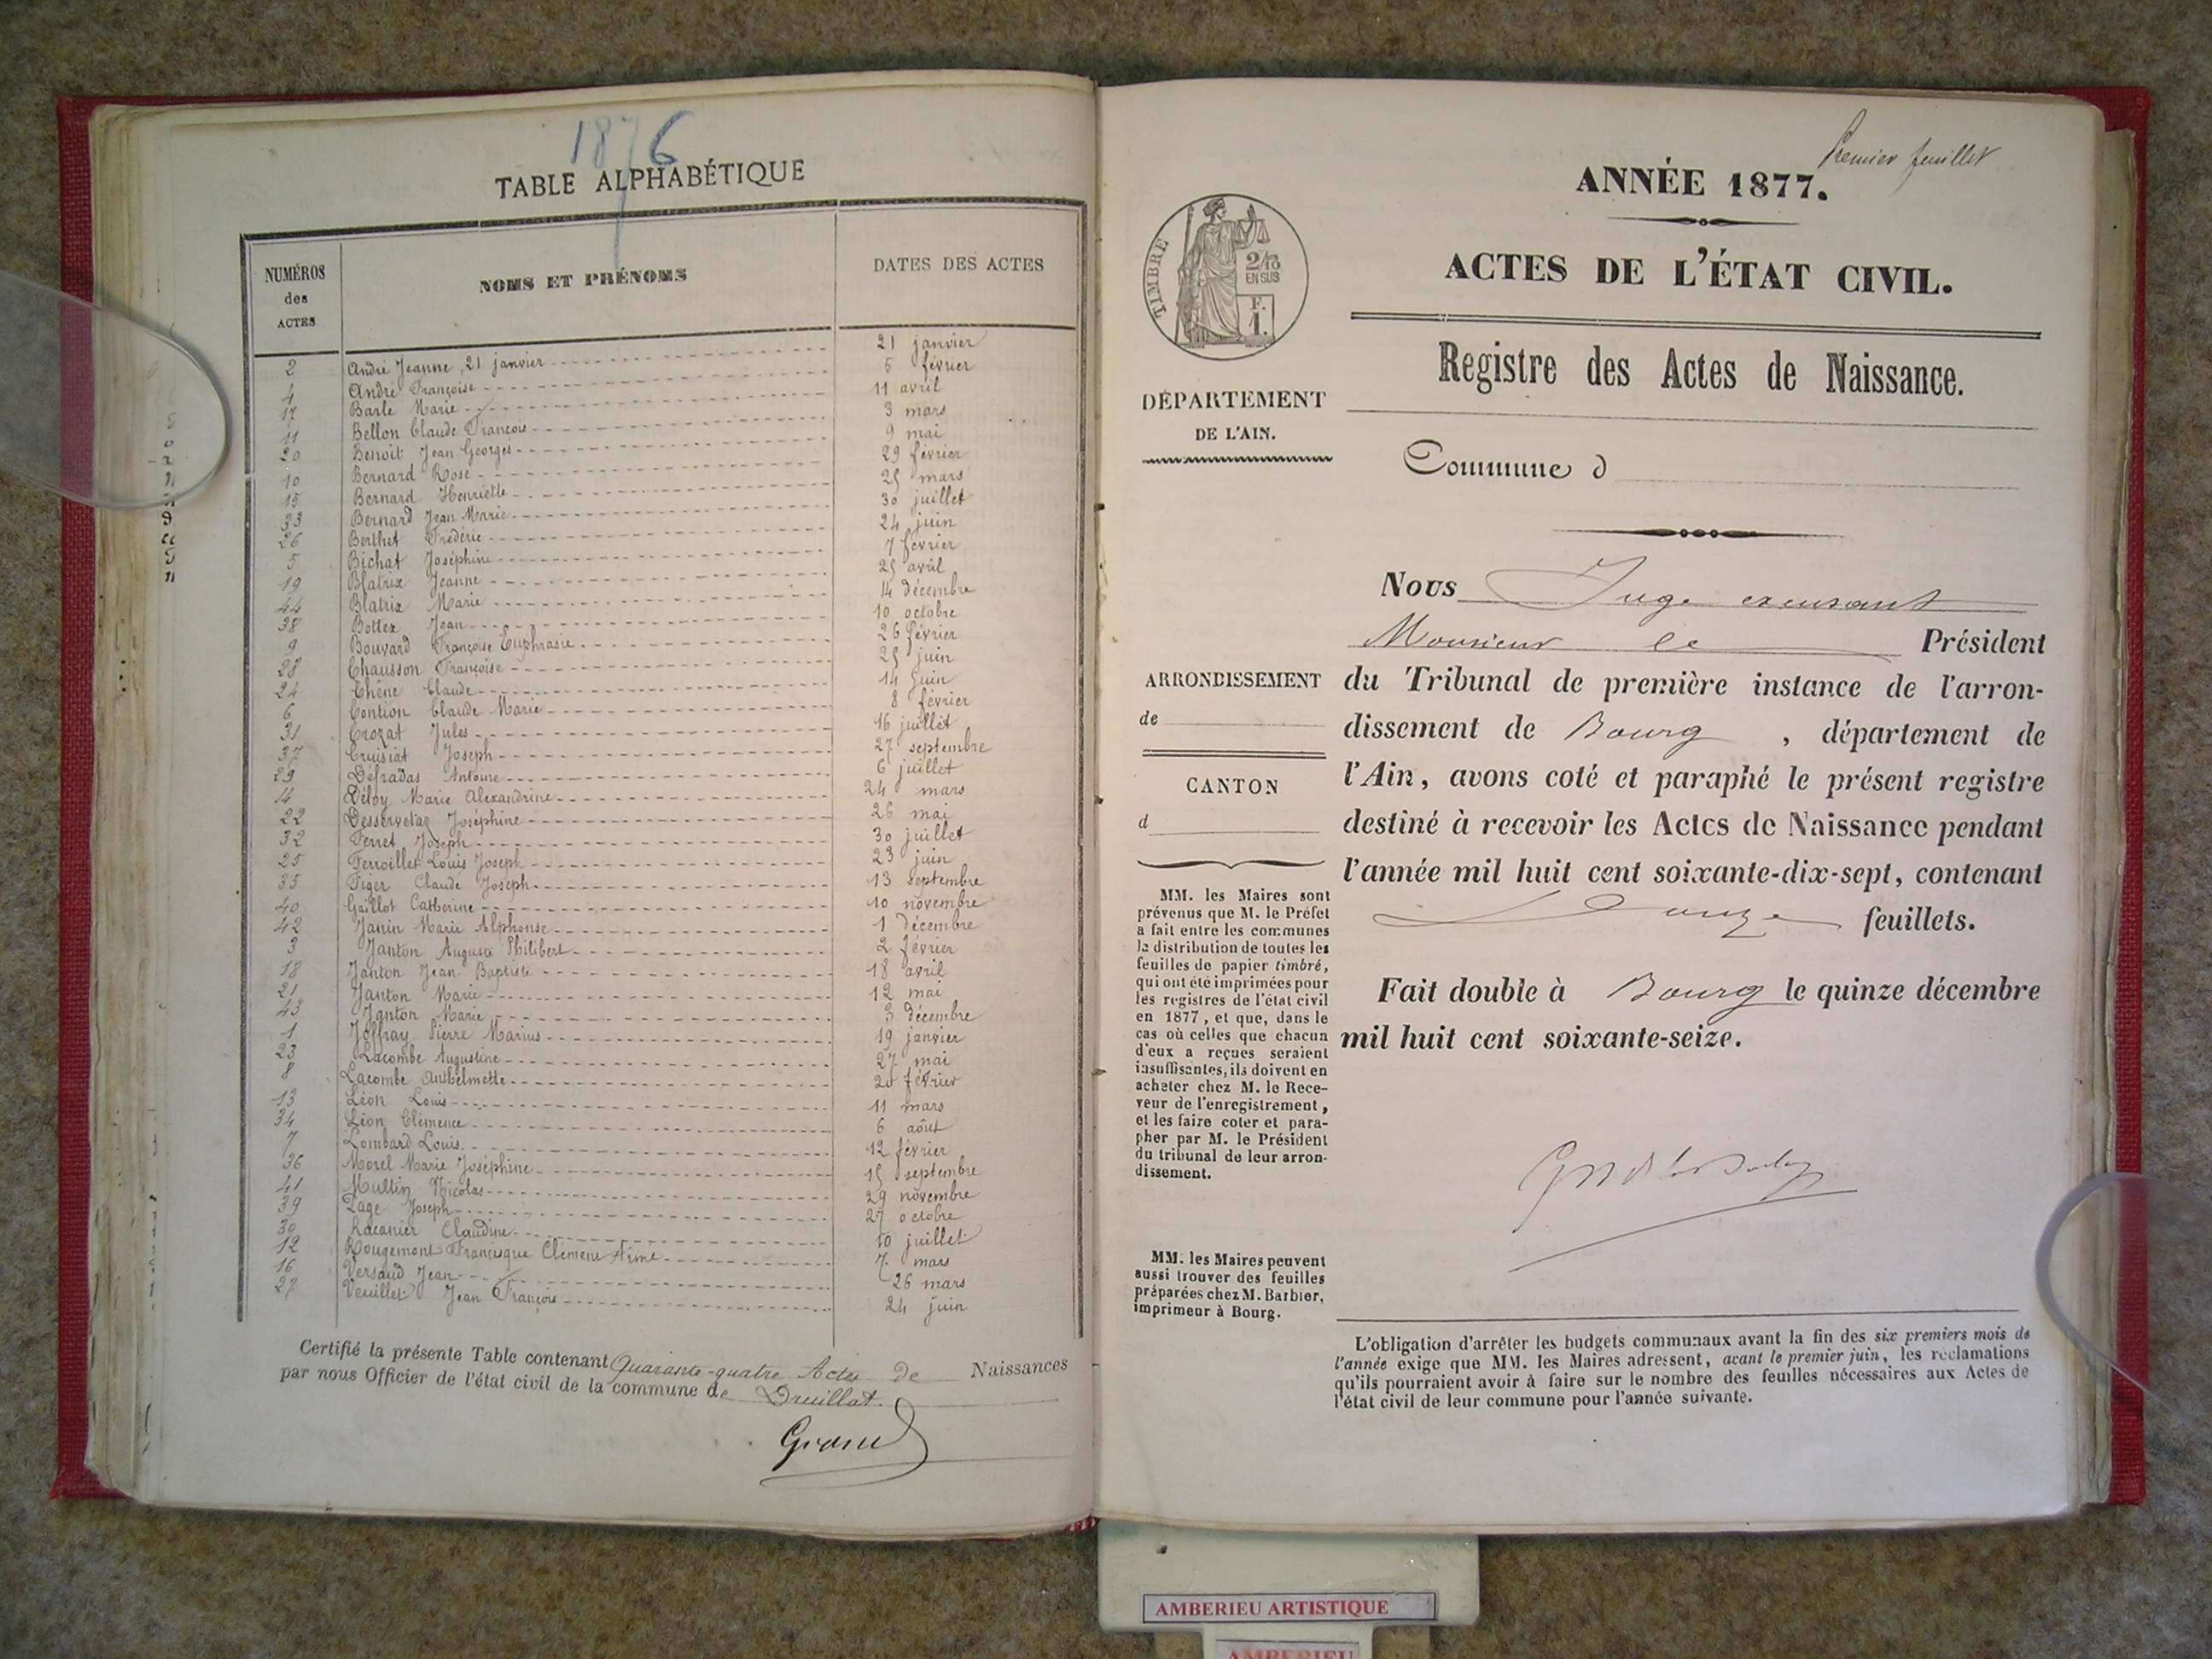 1876
TABLE ALPHABÉTIQUE
NUMÉROS des ACTES NOMS ET PRÉNOMS DATES DES ACTES
2 André Jeanne, 21 janvier 21 janvier
4 André Françoise 5 février
17 Barle Marie 11 avril
11 Bellon Claude François 3 mars
20 Benoit Jean Georges 9 mai
10 Bernard Rose 29 février
15 Bernard Henriette 25 mars
33 Bernard Jean Marie 30 juillet
26 Berthet Frédéric 24 juin
5 Bichat Joséphine 7 février
19 Blatrix Jeanne 25 avril
44 Blatrix Marie 14 décembre
38 Bottex Jean 10 octobre
9 Bouvard Françoise Euphrasie 26 février
28 Chausson Françoise 25 juin
24 Chêne Claude 14 juin
6 Contion Claude Marie 8 février
31 Crozat Jules 16 juillet
37 Cruisiat Joseph 27 septembre
29 Défradas Antoine 6 juillet
14 Déloy Marie Alexandrine 24 mars
22 Desservetaz Joséphine 26 mai
32 Ferret Joseph 30 juillet
25 Ferroillet Louis Joseph 23 juin
35 Figer Claude Joseph 13 septembre
40 Gaillot Catherine 10 novembre
42 Janin Marie Alphonse 1 décembre
3 Janton Auguste Philibert 2 février
18 Janton Jean Baptiste 18 avril
21 Janton Marie 12 mai
43 Janton Marie 3 décembre
1 Joffray Pierre Marius 19 janvier
23 Lacombe Augustine 27 mai
8 Lacombe Anthelmette 20 février
13 Léon Louis 11 mars
34 Léon Clémence 6 août
7 Lombard Louis 12 février
36 Morel Marie Joséphine 15 septembre
41 Multin Nicolas 29 novembre
39 Page Joseph 27 octobre
30 Racanier Claudine 10 juillet
12 Rougemont Francisque Clément Aimé 7 mars
16 Versaud Jean 26 mars
27 Veuillet Jean François 24 juin
Certifié la présente Table contenant Quarante-quatre Actes de Naissances
par nous Officier de l'état civil de la commune de Druillat.
Grand
Premier feuillet
ANNÉE 1877.
ACTES DE L'ÉTAT CIVIL.
TIMBRE
2/10
EN SUS
F.
1.
Registre des Actes de Naissance.
DÉPARTEMENT
DE L'AIN.
Commune d
Nous Juge excusant
Monsieur le Président
du Tribunal de première instance de l'arron-
dissement de Bourg, département de
l'Ain, avons coté et paraphé le présent registre
destiné à recevoir les Actes de Naissance pendant
l'année mil huit cent soixante-dix-sept, contenant
feuillets.
Fait double à Bourg le quinze décembre
mil huit cent soixante-seize.
ARRONDISSEMENT
de
CANTON
d
MM. les Maires sont
prévenus que M. le Préfet
a fait entre les communes
la distribution de toutes les
feuilles de papier timbré,
qui ont été imprimées pour
les registres de l'état civil
en 1877, et que, dans le
cas où celles que chacun
d'eux a reçues seraient
insuffisantes, ils doivent en
acheter chez M. le Rece-
veur de l'enregistrement,
et les faire coter et para-
pher par M. le Président
du tribunal de leur arron-
dissement.
MM. les Maires peuvent
aussi trouver des feuilles
préparées chez M. Barbier,
imprimeur à Bourg.
L'obligation d'arrêter les budgets communaux avant la fin des six premiers mois de
l'année exige que MM. les Maires adressent, avant le premier juin, les réclamations
qu'ils pourraient avoir à faire sur le nombre des feuilles nécessaires aux Actes de
l'état civil de leur commune pour l'année suivante.
AMBERIEU ARTISTIQUE
AMBERIEU